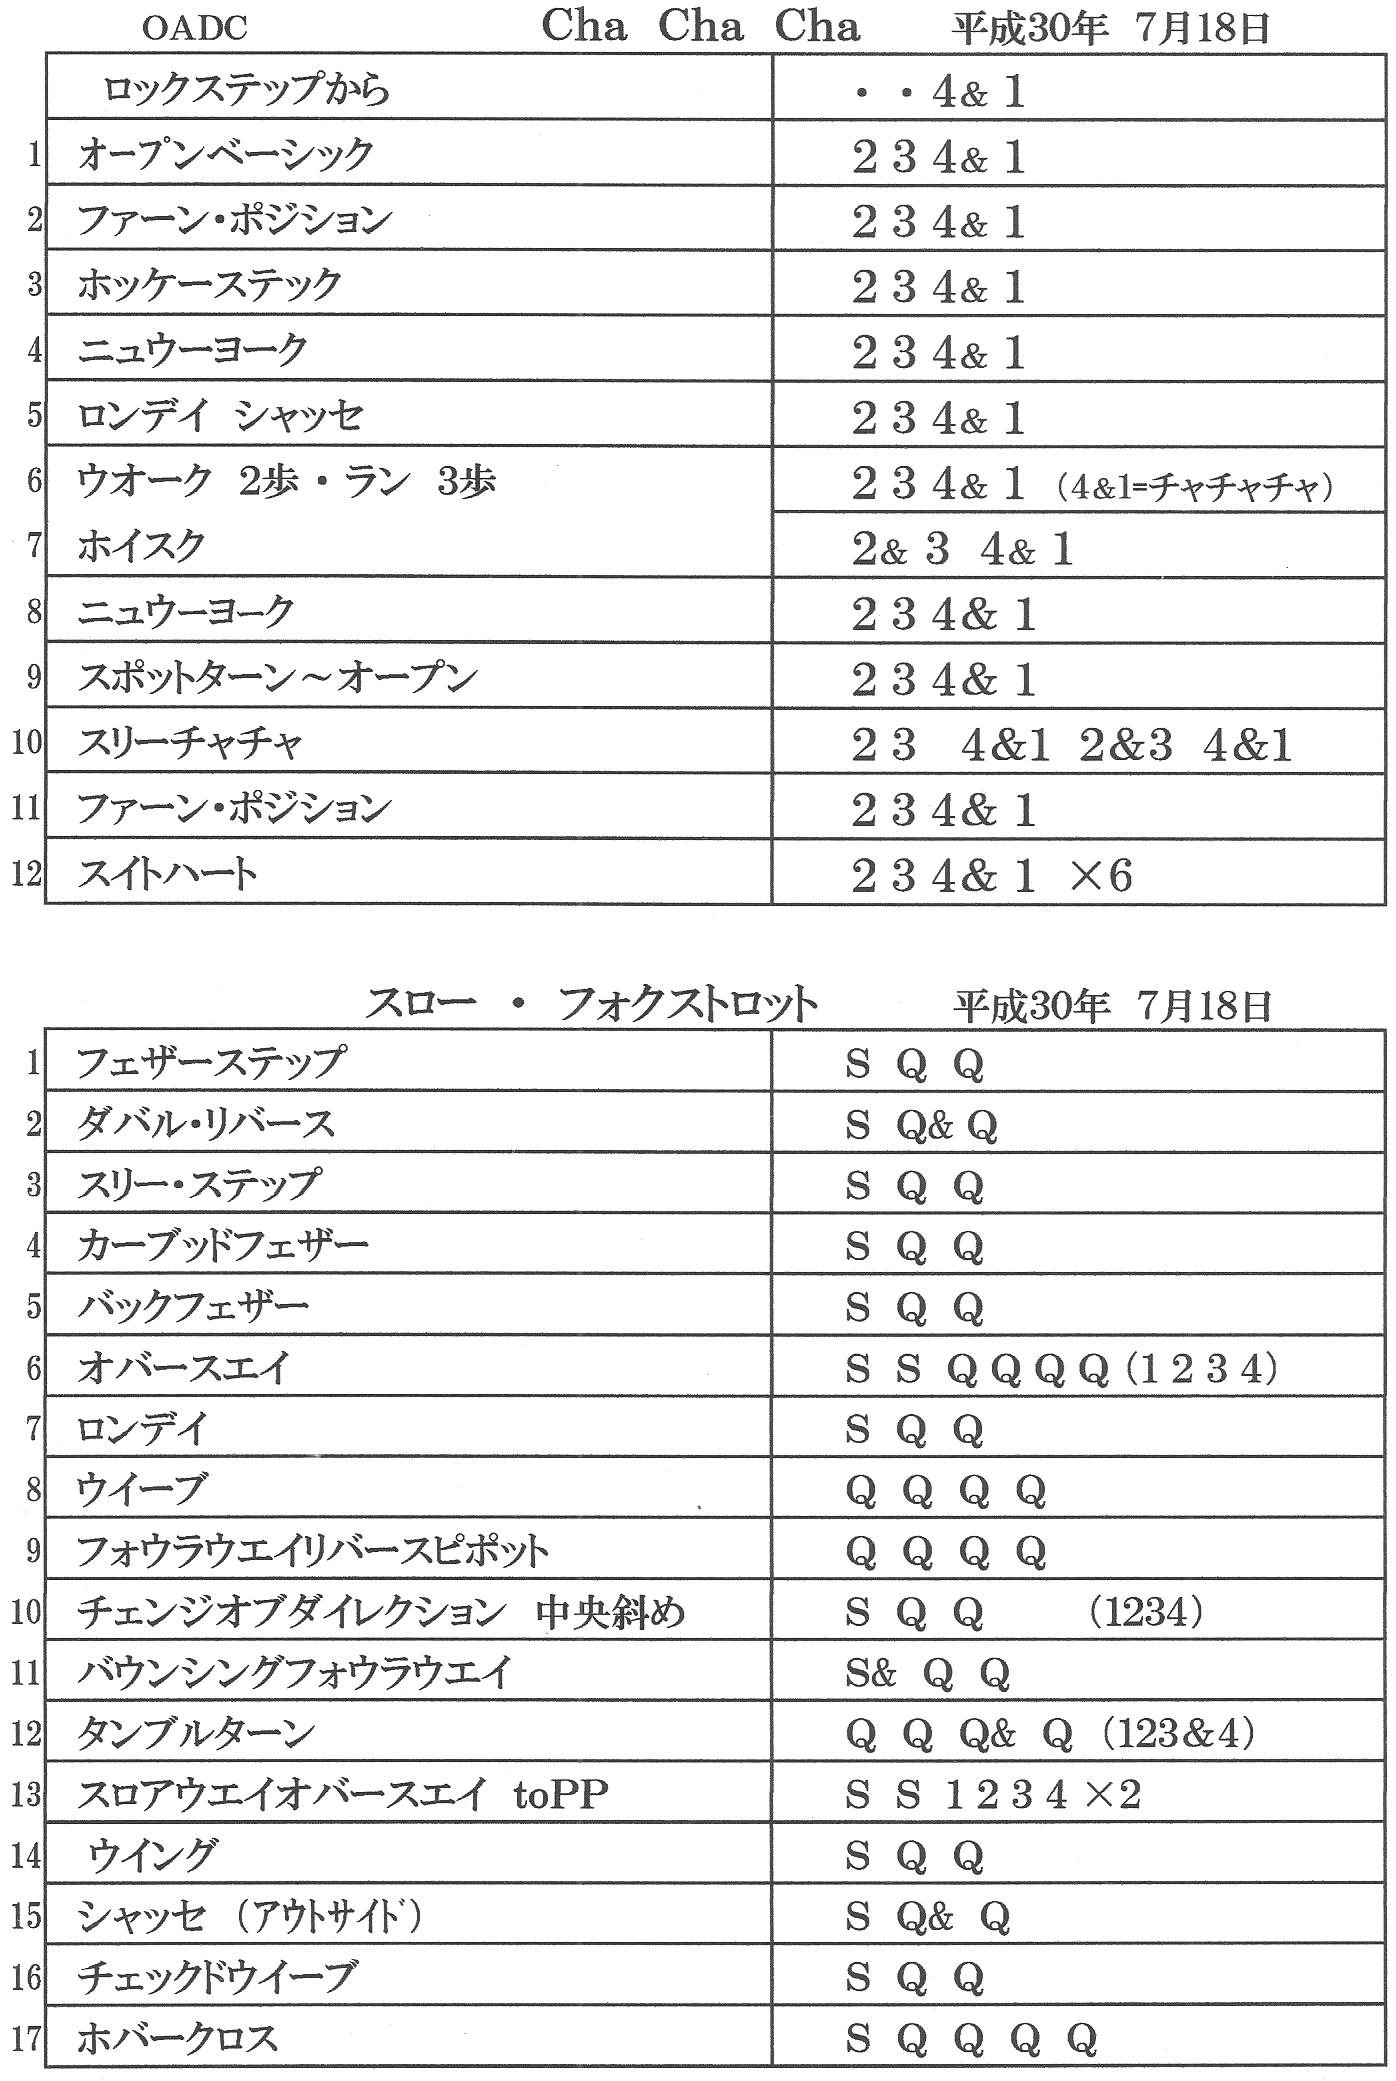 OADC Cha Cha Cha 平成30年 7月18日
ロックステップから ・・4& 1
1 オープンベーシック 2 3 4& 1
2 ファーン・ポジション 2 3 4& 1
3 ホッケーステック 2 3 4& 1
4 ニュウーヨーク 2 3 4& 1
5 ロンデイ シャッセ 2 3 4& 1
6 ウオーク 2歩・ラン 3歩 2 3 4& 1 (4&1=チャチャチャ)
7 ホイスク 2& 3 4& 1
8 ニュウーヨーク 2 3 4& 1
9 スポットターン～オープン 2 3 4& 1
10 スリーチャチャ 2 3 4&1 2&3 4&1
11 ファーン・ポジション 2 3 4& 1
12 スイトハート 2 3 4& 1 ×6
スロー ・ フォクストロット 平成30年 7月18日
1 フェザーステップ S Q Q
2 ダバル・リバース S Q& Q
3 スリー・ステップ S Q Q
4 カーブッドフェザー S Q Q
5 バックフェザー S Q Q
6 オバースエイ S S Q Q Q Q (1 2 3 4)
7 ロンデイ S Q Q
8 ウイーブ Q Q Q Q
9 フォウラウエイリバースピポット Q Q Q Q
10 チェンジオブダイレクション 中央斜め S Q Q (1234)
11 バウンシングフォウラウエイ S& Q Q
12 タンブルターン Q Q Q& Q (123&4)
13 スロアウエイオバースエイ toPP S S 1 2 3 4 ×2
14 ウイング S Q Q
15 シャッセ (アウトサイド) S Q& Q
16 チェックドウイーブ S Q Q
17 ホバークロス S Q Q Q Q